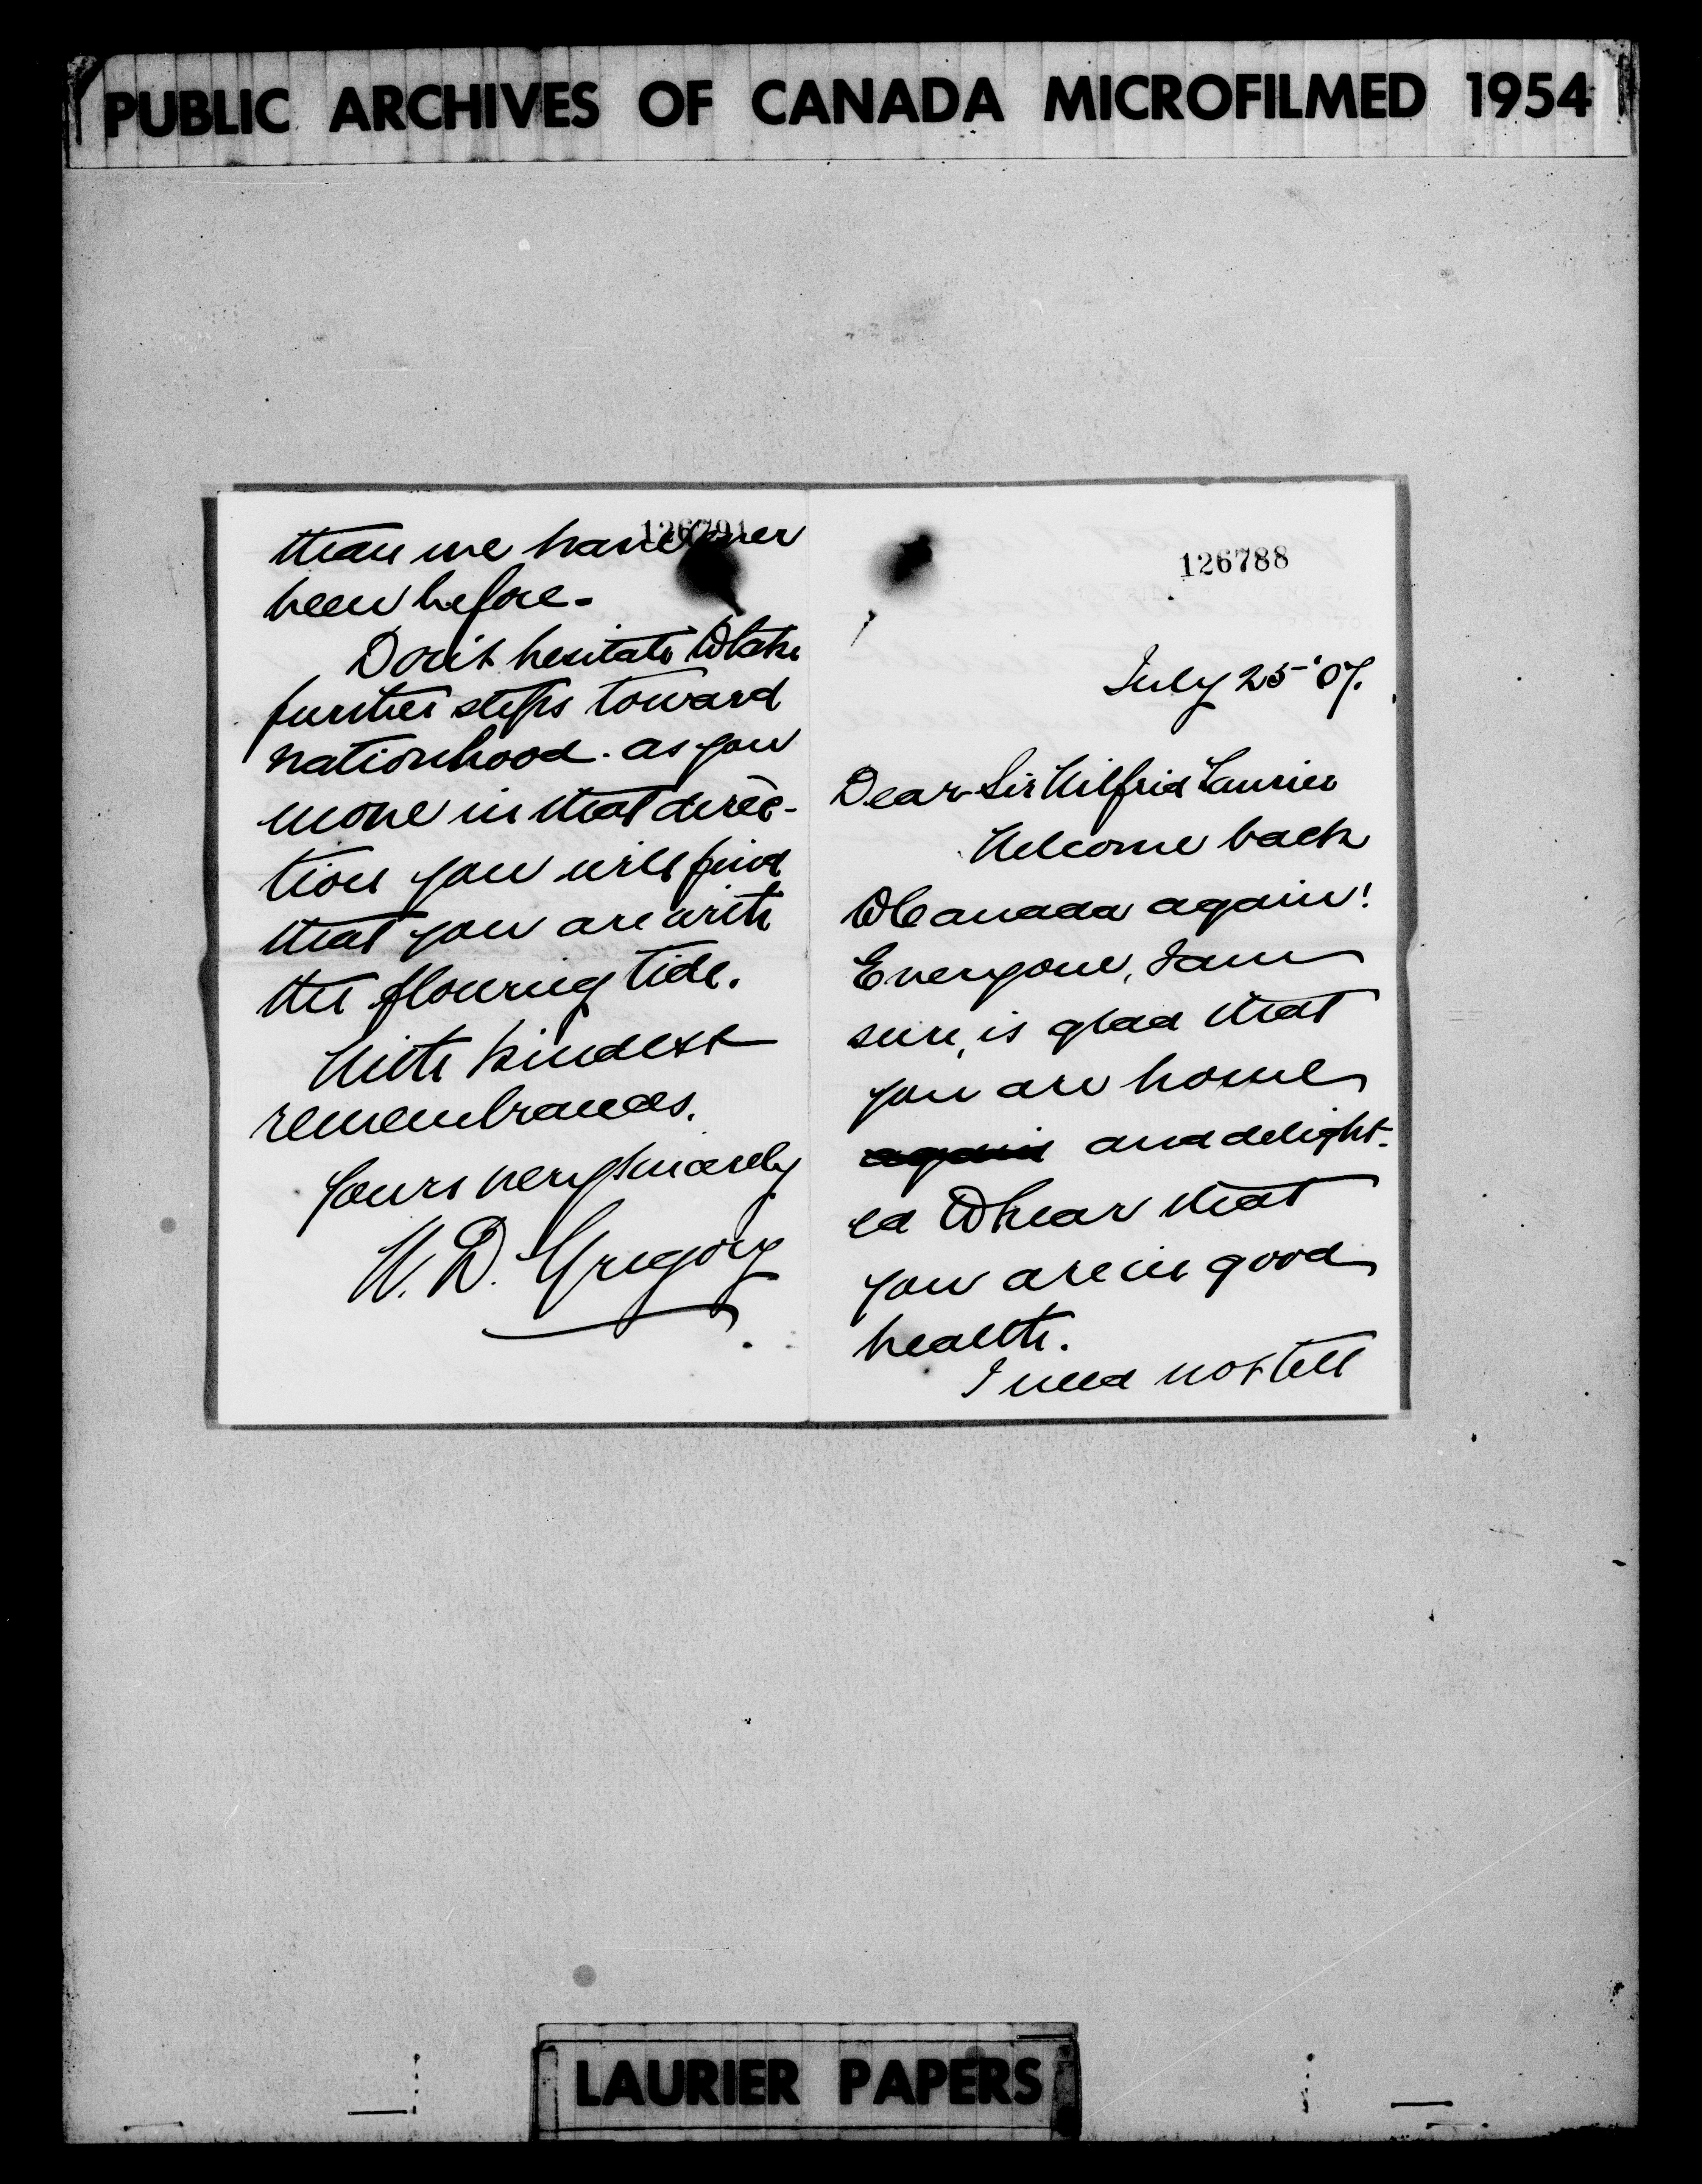 PUBLIC ARCHIVES OF CANADA MICROFILMED 1954
126791
than we have ever
been before.
Don't hesitate to take
further steps toward
nationhood. as you
move in that direc-
tion you will find
that you are with
the flowing tide.
With kindest
remembrances.
Yours very sincerely
W. D. Gregory
126788
July 25 '07.
Dear Sir Wilfrid Laurier
Welcome back
to Canada again!
Everyone, I am
sure, is glad that
you are home
again and delight-
ed to hear that
you are in good
health.
I need not tell
LAURIER PAPERS